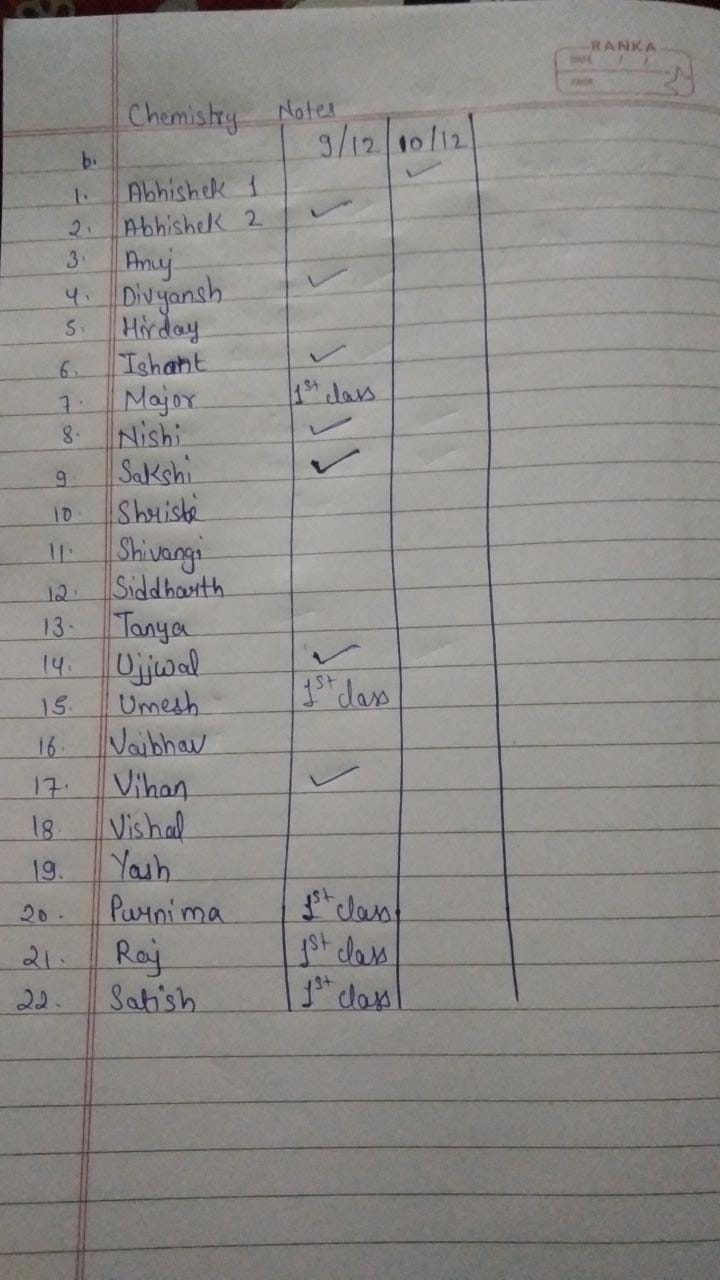 RANKA
DATE / /
PAGE
Chemistry Notes
b. 9/12 10/12
1. Abhishek 1 ✓
2. Abhishek 2 ✓
3. Anuj
4. Divyansh ✓
5. Hirday
6. Ishant ✓
7. Major 1st class
8. Nishi ✓
9 Sakshi ✓
10. Shristi
11. Shivangi
12. Siddharth
13. Tanya
14. Ujjwal ✓
15. Umesh 1st class
16. Vaibhav
17. Vihan ✓
18. Vishal
19. Yash
20. Purnima 1st class
21. Raj 1st class
22. Satish 1st class